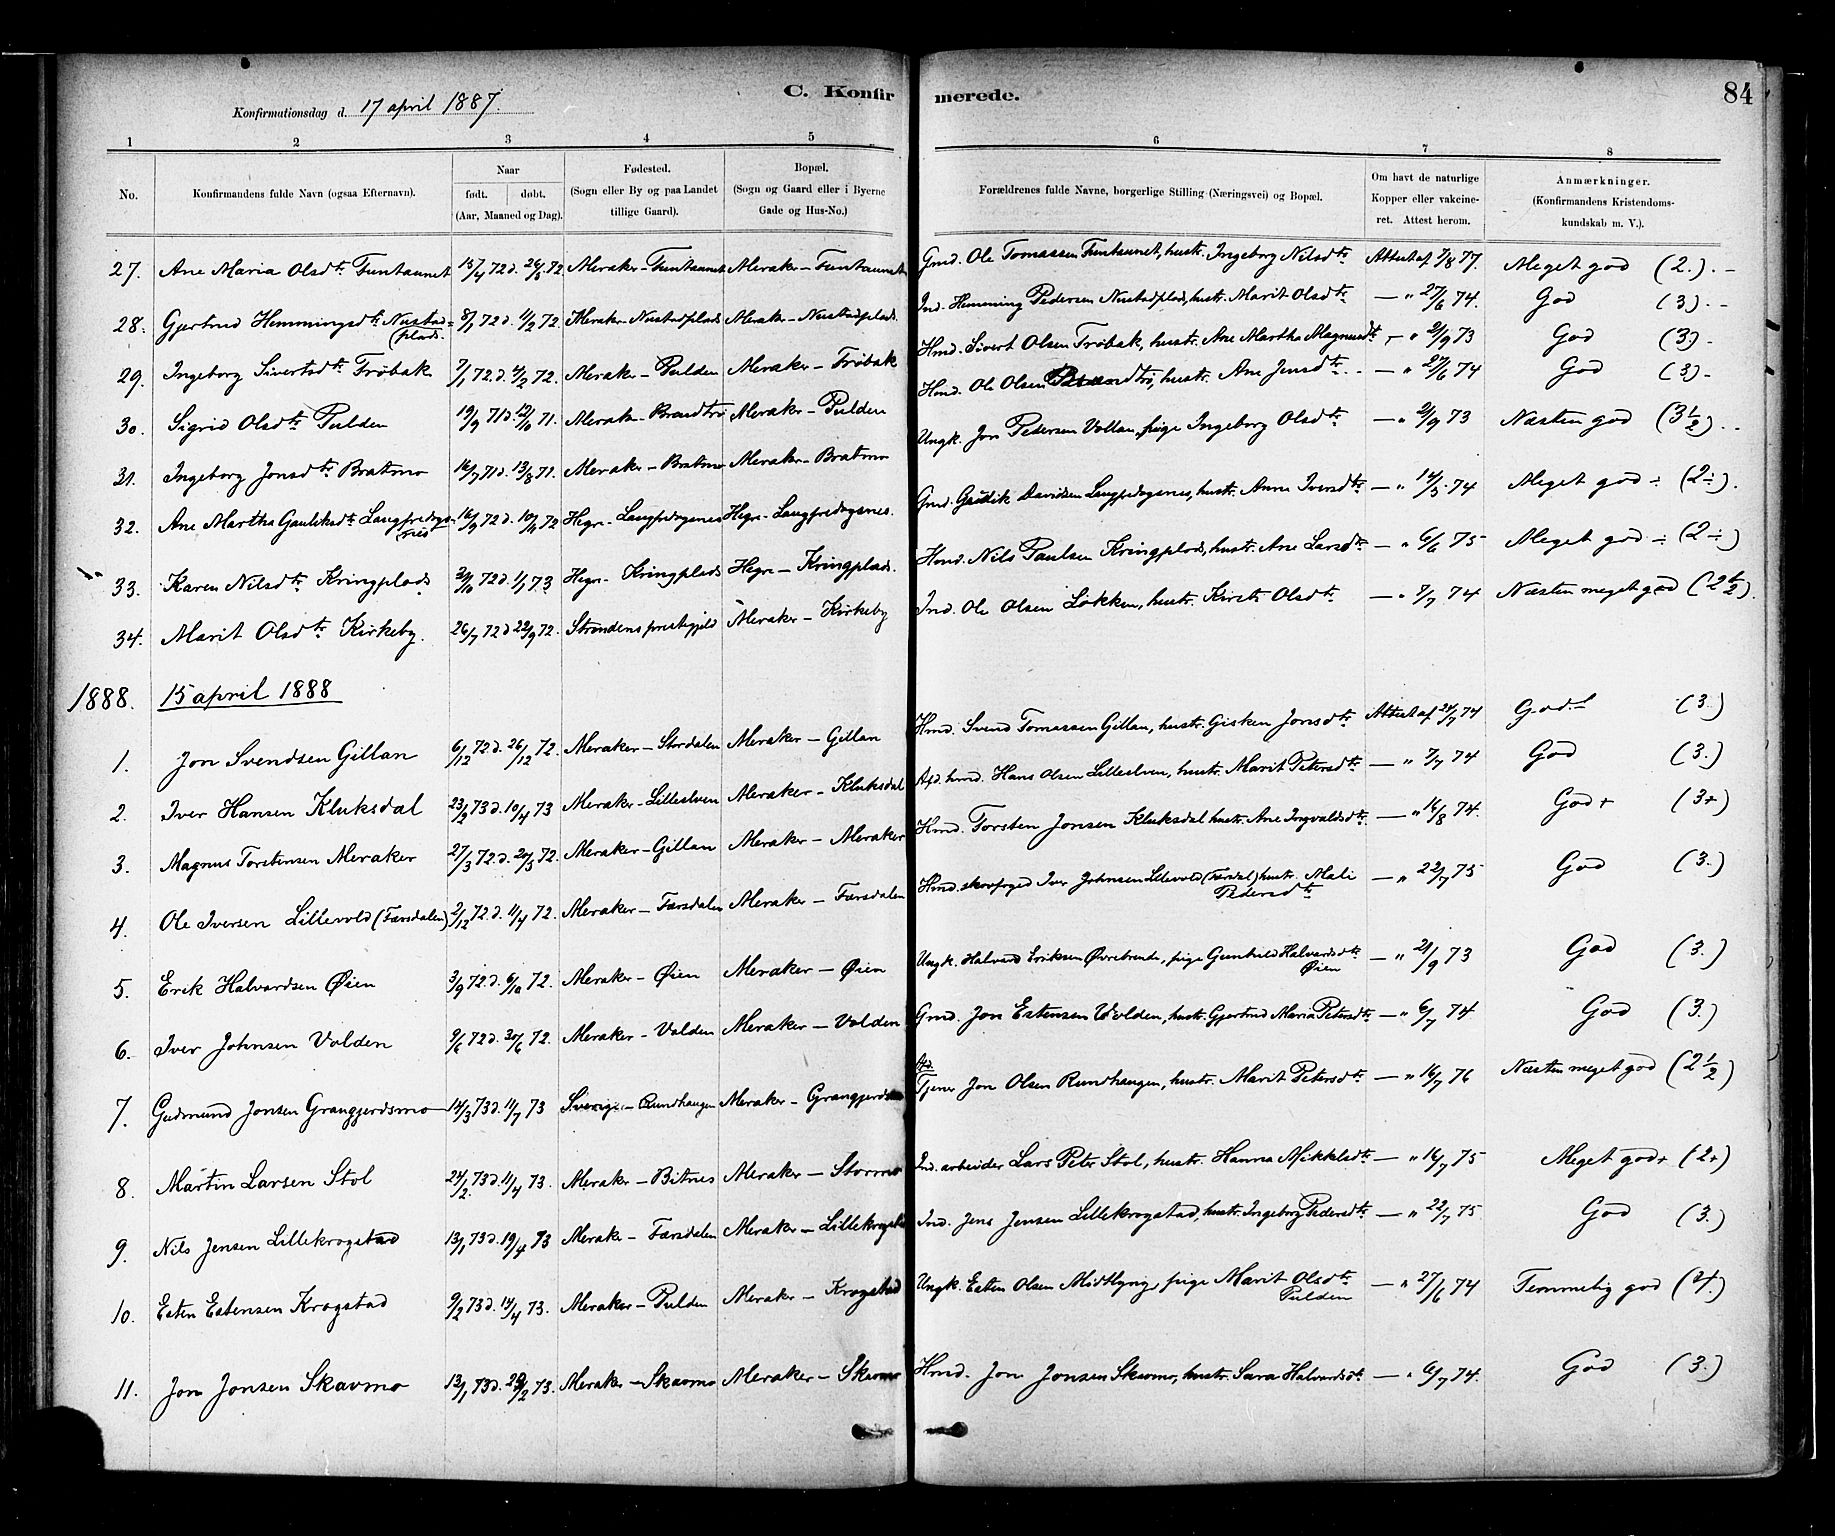 84
C. Konfirmerede.
Konfirmationsdag d. 17 april 1887.
1 2 3 4 5 6 7 8
No. Konfirmandens fulde Navn (ogsaa Efternavn). Naar født. døbt. (Aar, Maaned og Dag). Fødested. (Sogn eller By og paa Landet tillige Gaard). Bopæl. (Sogn og Gaard eller i Byerne Gade og Hus-No.) Forældrenes fulde Navne, borgerlige Stilling (Næringsvei) og Bopæl. Om havt de naturlige Kopper eller vakcineret. Attest herom. Anmærkninger. (Konfirmandens Kristendomskundskab m. V.).
27. Ane Maria Olsdtr Funtaunet 15/4 72 d. 26/5 72 Meraker - Funtaunet Meraker - Funtaunet Gmd. Ole Tomassen Funtaunet, hustr. Ingeborg Nilsdtr Attest af 7/8 77. Meget god (2.). -
28. Gjertrud Hemmingsdtr Nustadplads. 8/1 72 d. 11/2 72. Meraker - Nustadplads Meraker - Nustadplads. Ind. Hemming Pedersen Nustadplads, hustr. Marit Olsdtr — " 27/6 74. God (3). -
29. Ingeborg Sivertsdtr Trøbak 7/1 72. d. 4/2 72. Meraker - Pulden Meraker - Trøbak Hmd. Sivert Olsen Trøbak, hustr. Ane Martha Magnusdtr — " 2/9 73 God (3) -
30. Sigrid Olsdtr Pulden 19/9 71 d. 12/10 71. Meraker - Brandtrø Meraker - Pulden Hmd. Ole Olsen Brandtrø, hustr. Ane Jensdtr - — " 27/6 74 God (3) -
31. Ingeborg Jonsdtr Bratmo 16/7 71 d. 13/8 71. Meraker - Bratmo Meraker - Bratmo Ungk. Jon Pedersen Vollan, pige Ingeborg Olsdtr — " 2/9 73 Næsten god (3 1/2). -
32. Ane Martha Gauliksdtr Langfredagsnes 16/9 72 d. 10/11 72 Hegre - Langfredagsnes Hegre - Langfredagsnes. Gmd. Gaulik Davidsen Langfredagsnes, hustr. Anne Iversdtr — " 14/5 74 Meget god ÷ (2÷).
33. Karen Nilsdtr Kringplads 72 d. 1/1 73 Hegre - Kringplads Hegre - Kringplads. Hmd. Nils Paulsen Kringplads, hustr. Ane Larsdtr — " 6/6 75 Meget god ÷ (2÷)
34. Marit Olsdtr Kirkeby. 26/7 72 d 22/9 72. Strandens prestegjeld Meraker - Kirkeby Ind. Ole Olsen Løkken, hustr. Kirsti Olsdtr — " 7/7 74 Næsten meget god (2 1/2).
1888. 15 april 1888
1. Jon Svendsen Gillan 6/12 72 d. 26/12 72. Meraker - Stordalen Meraker - Gillan Hmd. Svend Tomassen Gillan, hustr. Gisken Jonsdtr Attest af 24/7 74 God (3.)
2. Iver Hansen Kluksdal 23/2 73 d. 10/4 73 Meraker - Lilleelven Meraker - Kluksdal Afd. hmd. Hans Olsen Lilleelven, hustr. Marit Petersdtr — " 7/7 74 God (3.)
3. Magnus Torstensen Meraker 27/3 72. d. 20/5 72. Meraker - Gillan Meraker - Meraker Hmd. Torsten Jonsen Kluksdal hustr. Ane Ingvaldsdtr. — " 16/8 74. God + (3+)
4. Ole Iversen Lillevold (Færsdalen) 2/12 72 d. 11/4 72. Meraker - Færsdalen Meraker - Færsdalen Hmd. skovfoged Iver Johnsen Lillevold (Færsdal) hustr. Mali Pedersdtr — " 22/7 75 God (3.)
5. Erik Halvardsen Øien 3/9 72 d. 6/10 72. Meraker - Øien Meraker - Øien Ungk. Halvard Eriksen Øvrebrende, pige Gunhild Halvardsdtr Øien — " 21/9 73 God (3.)
6. Iver Johnsen Volden 9/6 72 d. 30/6 72. Meraker - Volden Meraker - Volden Gmd. Jon Estensen Volden, hustr. Gjertrud Maria Petersdtr — " 6/7 74 God (3.)
7. Gudmund Jonsen Grangjerdsmo 14/3 73 d. 11/7 73 Sverige - Rundhaugen Meraker - Grangjerdsmo Afd. Tjener Jon Olsen Rundhaugen, hustr. Marit Petersdtr — " 16/7 76 Næsten meget god (2 1/2)
8. Martin Larsen Stol 24/2 73 d. 11/4 73. Meraker - Bitnes Meraker - Stormo Ind. arbeider Lars Peter Stol, hustr. Hanna Mikkelsdtr — " 16/7 75 Meget god + (2+)
9. Nils Jensen Lillekrogstad 13/1 73 d. 19/4 73 Meraker - Færsdalen Meraker - Lillekrogstad Ind. Jens Jensen Lillekrogstad, hustr. Ingeborg Pedersdtr — " 22/7 75 God (3.)
10. Esten Estensen Krogstad 9/2 73 d. 14/4 73. Meraker - Pulden Meraker - Krogstad Ungk. Esten Olsen Midtlyng, pige Marit Olsdtr Pulden — " 27/6 74 Temmelig god (4.)
11. Jon Jonsen Skavmo 13/1 73 d. 73. Meraker - Skavmo Meraker - Skavmo Hmd. Jon Jonsen Skavmo, hustr. Sara Halvardsdtr — " 6/7 74. God (3.)